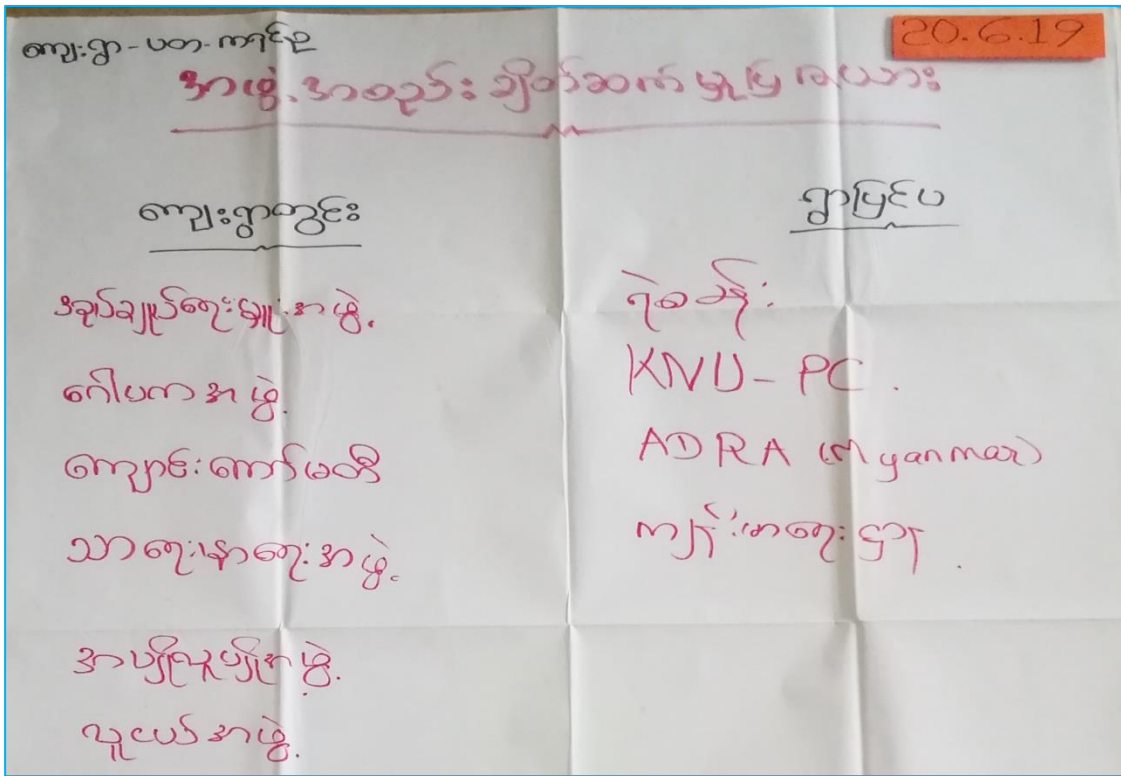 ကျေးရွာ-ပတ-ကရင်ဥ
20.6.19
အဖွဲ့အစည်းချိတ်ဆက်မှုပြဇယား
ကျေးရွာတွင်း
အုပ်ချုပ်ရေးမှူးအဖွဲ့
ဂေါပကအဖွဲ့
ကျောင်းကော်မတီ
သာရေးနာရေးအဖွဲ့
အပျိုလူပျိုအဖွဲ့
လူငယ်အဖွဲ့
ရွာပြင်ပ
ရဲစခန်း
KNU-PC.
ADRA (Myanmar)
ကျန်းမာရေးဌာန